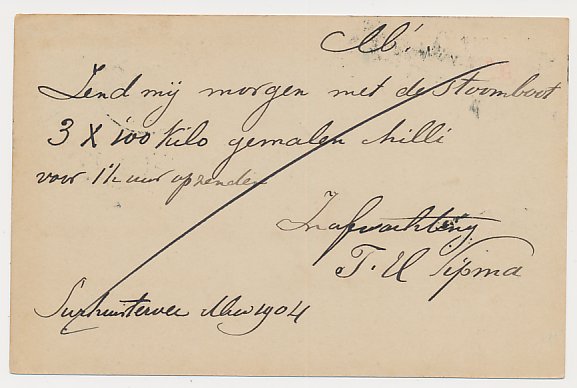 M'.
Zend mij morgen met de stoomboot
3 X 100 Kilo gemalen chilli
voor 1½ uur opzenden
In afwachting
T. H Sipma
Surhuisterveen 1904